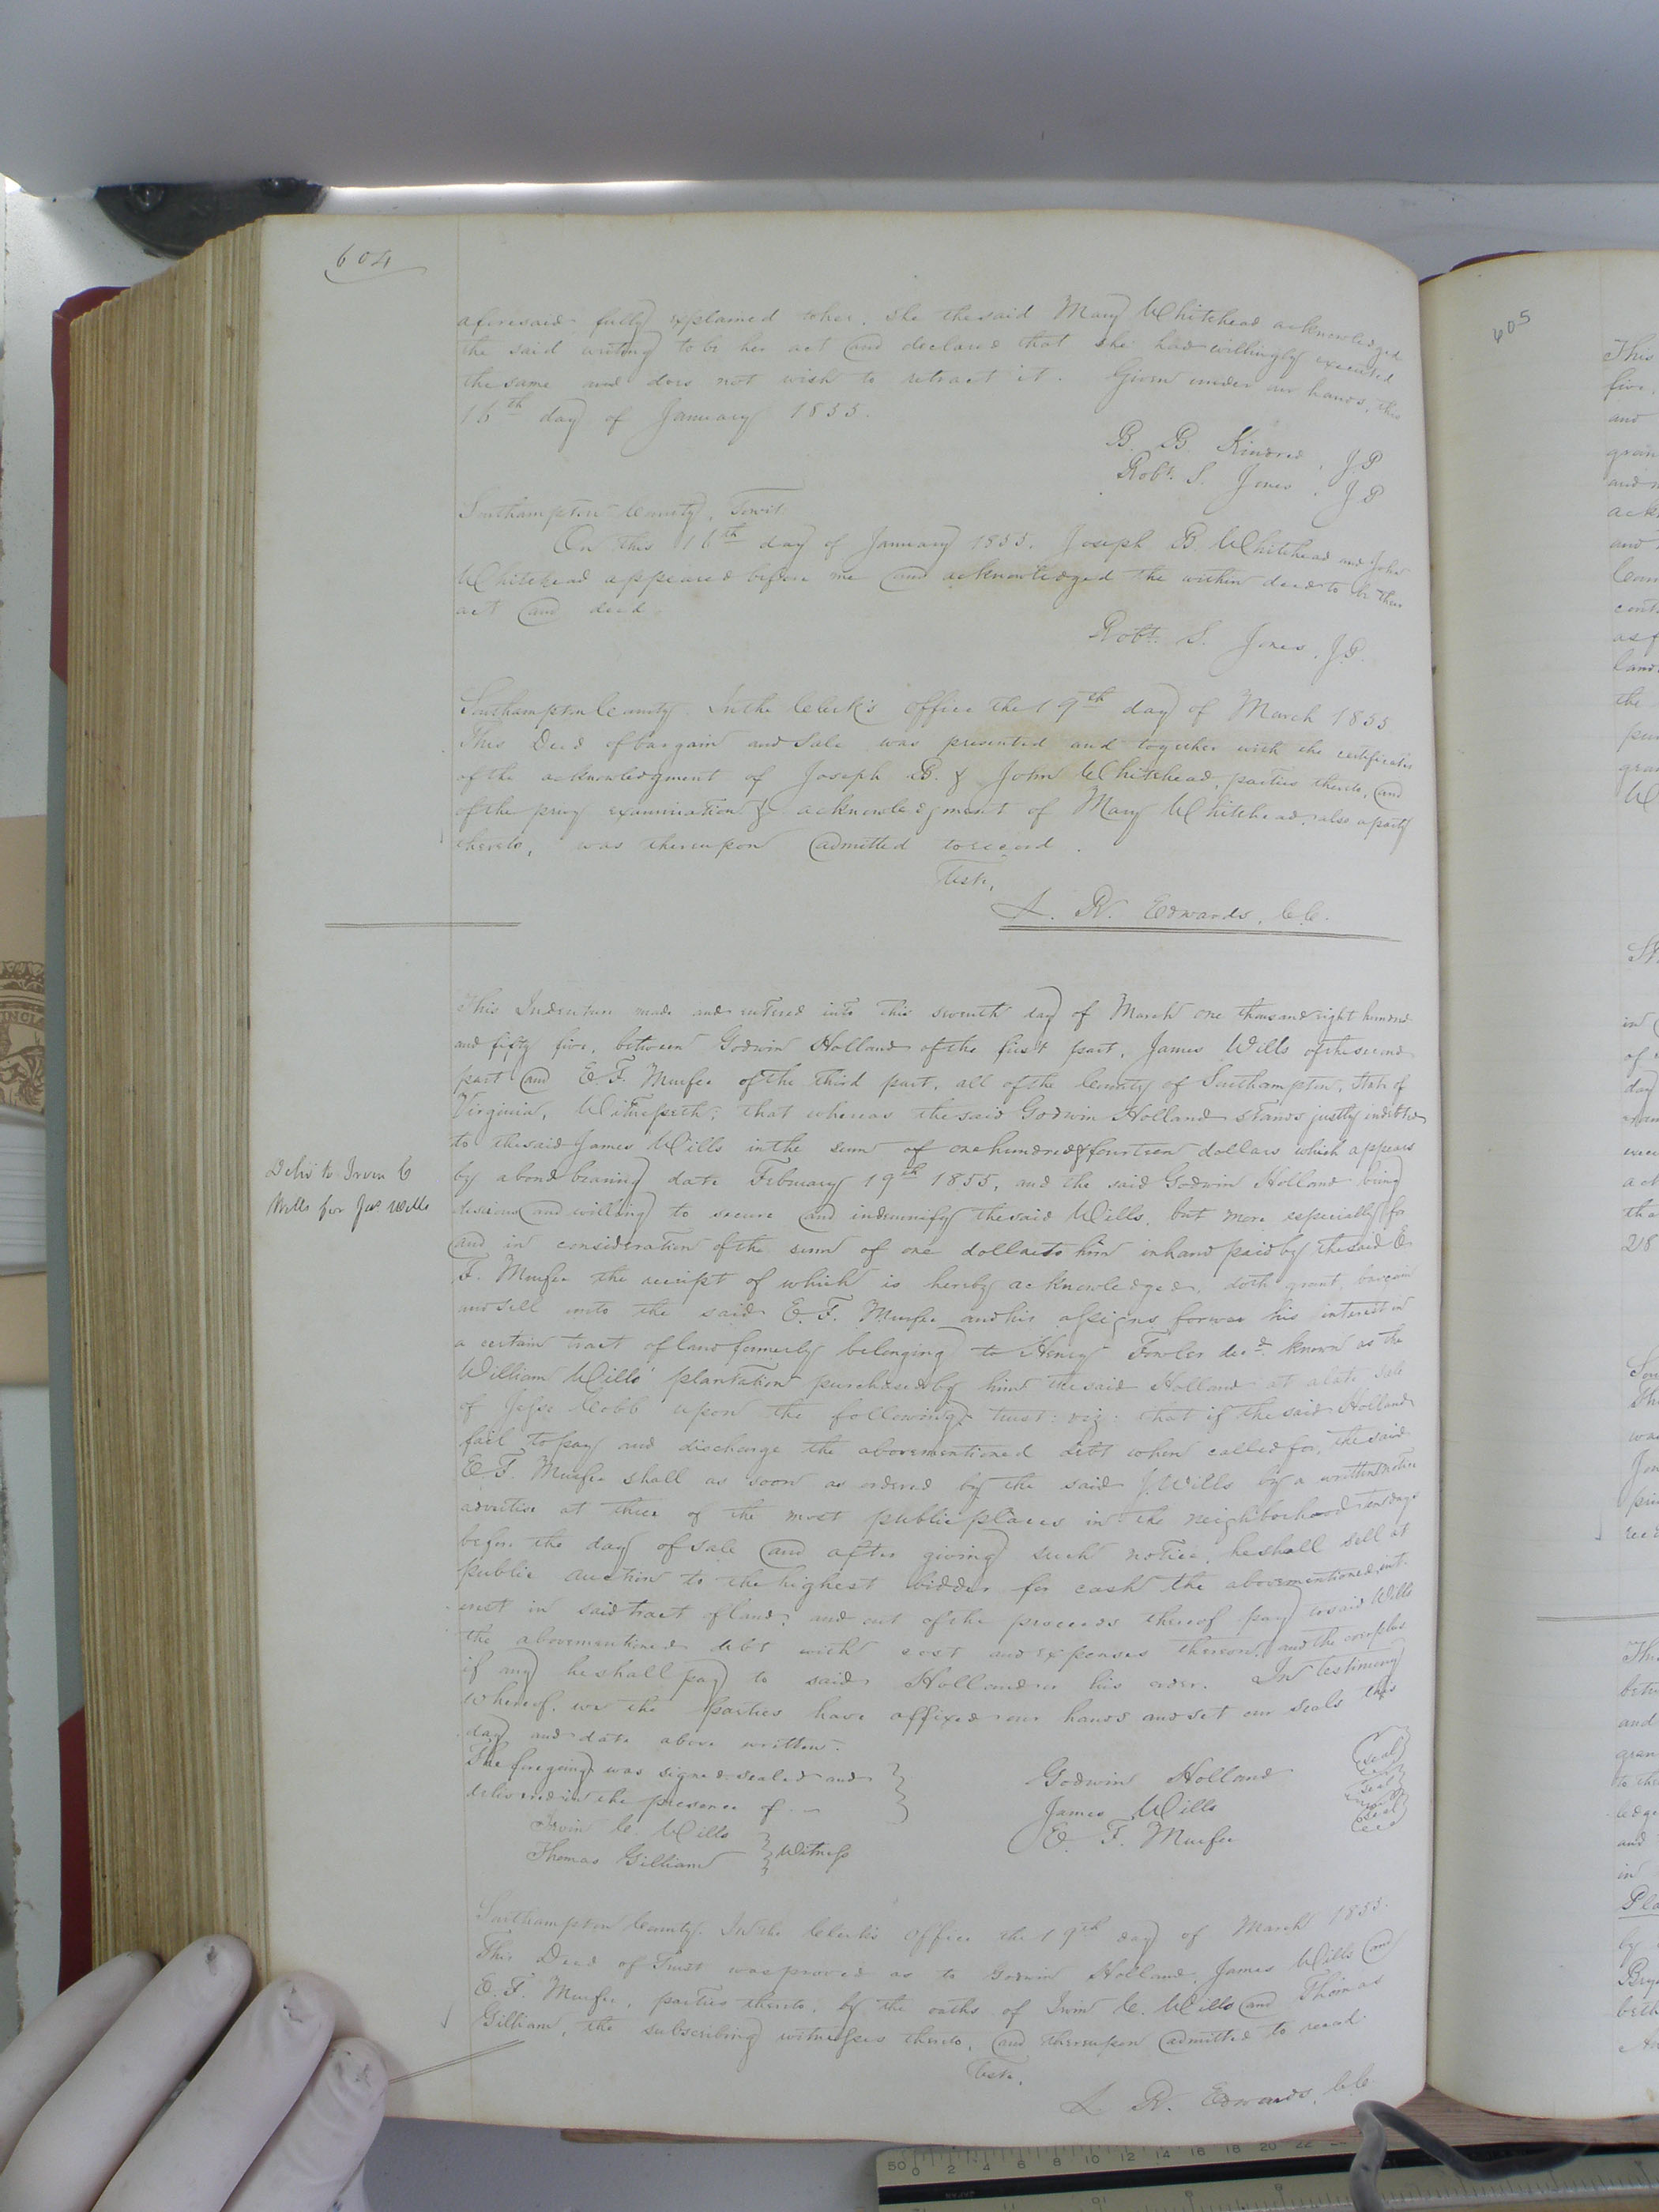 604
aforesaid fully explained to her. She the said Mary Whitehead acknowledged
the said writing to be her act and declared that she had willingly executed
the same and does not wish to retract it. Given under our hands, this
16th day of January 1855.
B. B. Kindred, J.P
Robt. S. Jones, J.P
Southampton County, Towit
On this 16th day of January 1855. Joseph B. Whitehead and John
Whitehead appeared before me and acknowledged the within deed to be their
act and deed.
Robt. S. Jones, J.P.
Southampton County. In the Clerk's Office the 19th day of March 1855
This Deed of bargain and sale was presented and together with the certificates
of the acknowledgment of Joseph B. & John Whitehead, parties thereto, and
of the privy examination & acknowledgment of Mary Whitehead, also a party
thereto, was thereupon admitted to record.
Teste,
L. R. Edwards, C.C.
This Indenture made and entered into this seventh day of March one thousand eight hundred
and fifty five, between Godwin Holland of the first part, James Wills of the second
part and E. F. Murfee of the third part, all of the County of Southampton, State of
Virginia, Witnesseth: that whereas the said Godwin Holland stands justly indebted
to the said James Wills in the sum of one hundred & fourteen dollars which appears
by a bond bearing date February 19th 1855, and the said Godwin Holland being
desirous and willing to secure and indemnify the said Wills, but more especially for
and in consideration of the sum of one dollar to him in hand paid by the said E.
F. Murfee the receipt of which is hereby acknowledged, doth grant, bargain
and sell unto the said E. F. Murfee and his assigns forever his interest in
a certain tract of land formerly belonging to Henry Fowler decd. known as the
William Wills' plantation purchased by him the said Holland at a late sale
of Jesse Cobb upon the following trust: viz: that if the said Holland
fail to pay and discharge the abovementioned debt when called for, the said
E. F. Murfee shall as soon as ordered by the said J. Wills by a written notice
advertise at three of the most public places in the neighborhood ten days
before the day of sale and after giving such notice, he shall sell at
public auction to the highest bidder for cash the abovementioned int-
erest in said tract of land, and out of the proceeds thereof pay to said Wills
the abovementioned debt with cost and expenses thereon, and the overplus
if any he shall pay to said Holland or his order. In testimony
whereof, we the parties have affixed our hands and set our seals this
day and date above written.
The foregoing was signed, sealed and
delivered in the presence of
Irvin C. Wills
Thomas Gilliam
Witness
Godwin Holland seal
James Wills seal
E. F. Murfee seal
Delivd to Irvin C
Wills for Jas Wills
Southampton County. In the Clerk's Office the 19th day of March 1855.
This Deed of Trust was proved as to Godwin Holland, James Wills and
E. F. Murfee, parties thereto, by the oaths of Irvin C. Wills and Thomas
Gilliam, the subscribing witnesses thereto, and thereupon admitted to record.
Teste,
L. R. Edwards, C.C.
605